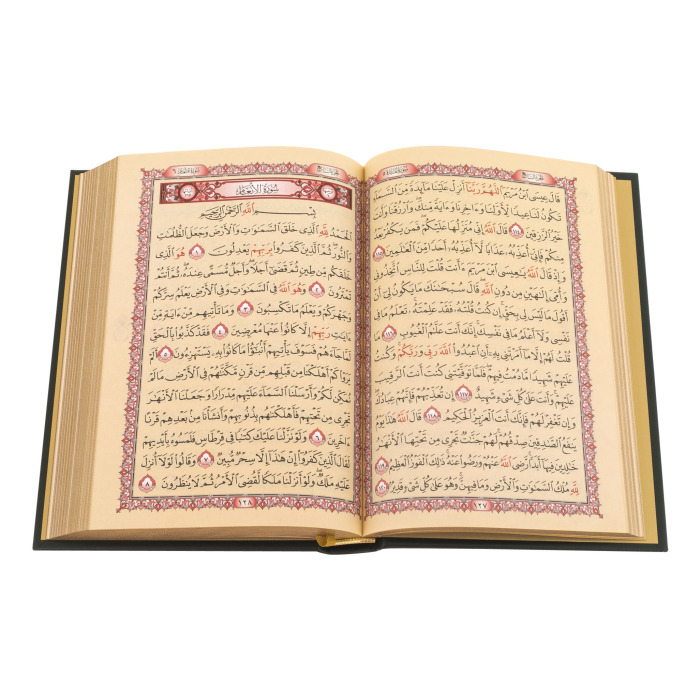 الجزء السابع
سورة المائدة
قَالَ عِيسَى ابْنُ مَرْيَمَ اللَّهُمَّ رَبَّنَا أَنزِلْ عَلَيْنَا مَائِدَةً مِّنَ السَّمَاءِ
تَكُونُ لَنَا عِيدًا لِّأَوَّلِنَا وَءَاخِرِنَا وَءَايَةً مِّنكَ وَارْزُقْنَا وَأَنتَ
خَيْرُ الرَّازِقِينَ ١١٤ قَالَ اللَّهُ إِنِّي مُنَزِّلُهَا عَلَيْكُمْ فَمَن يَكْفُرْ بَعْدُ
مِنكُمْ فَإِنِّي أُعَذِّبُهُ عَذَابًا لَّا أُعَذِّبُهُ أَحَدًا مِّنَ الْعَالَمِينَ ١١٥
وَإِذْ قَالَ اللَّهُ يَاعِيسَى ابْنَ مَرْيَمَ ءَأَنتَ قُلْتَ لِلنَّاسِ اتَّخِذُونِي
وَأُمِّيَ إِلَاهَيْنِ مِن دُونِ اللَّهِ قَالَ سُبْحَانَكَ مَا يَكُونُ لِي أَنْ
أَقُولَ مَا لَيْسَ لِي بِحَقٍّ إِن كُنتُ قُلْتُهُ فَقَدْ عَلِمْتَهُ تَعْلَمُ مَا فِي
نَفْسِي وَلَا أَعْلَمُ مَا فِي نَفْسِكَ إِنَّكَ أَنتَ عَلَّامُ الْغُيُوبِ ١١٦ مَا
قُلْتُ لَهُمْ إِلَّا مَا أَمَرْتَنِي بِهِ أَنِ اعْبُدُوا اللَّهَ رَبِّي وَرَبَّكُمْ وَكُنتُ
عَلَيْهِمْ شَهِيدًا مَّا دُمْتُ فِيهِمْ فَلَمَّا تَوَفَّيْتَنِي كُنتَ أَنتَ الرَّقِيبَ
عَلَيْهِمْ وَأَنتَ عَلَى كُلِّ شَيْءٍ شَهِيدٌ ١١٧ إِن تُعَذِّبْهُمْ فَإِنَّهُمْ عِبَادُكَ
وَإِن تَغْفِرْ لَهُمْ فَإِنَّكَ أَنتَ الْعَزِيزُ الْحَكِيمُ ١١٨ قَالَ اللَّهُ هَذَا يَوْمُ
يَنفَعُ الصَّادِقِينَ صِدْقُهُمْ لَهُمْ جَنَّاتٌ تَجْرِي مِن تَحْتِهَا الْأَنْهَارُ
خَالِدِينَ فِيهَا أَبَدًا رَّضِيَ اللَّهُ عَنْهُمْ وَرَضُوا عَنْهُ ذَلِكَ الْفَوْزُ الْعَظِيمُ ١١٩
لِلَّهِ مُلْكُ السَّمَاوَاتِ وَالْأَرْضِ وَمَا فِيهِنَّ وَهُوَ عَلَى كُلِّ شَيْءٍ قَدِيرٌ ١٢٠
١٢٧
الجزء السابع
سورة الأنعام ٦
سُورَةُ الْأَنْعَامِ
بِسْمِ اللَّهِ الرَّحْمَٰنِ الرَّحِيمِ
الْحَمْدُ لِلَّهِ الَّذِي خَلَقَ السَّمَاوَاتِ وَالْأَرْضَ وَجَعَلَ الظُّلُمَاتِ
وَالنُّورَ ثُمَّ الَّذِينَ كَفَرُوا بِرَبِّهِمْ يَعْدِلُونَ ١ هُوَ الَّذِي
خَلَقَكُم مِّن طِينٍ ثُمَّ قَضَى أَجَلًا وَأَجَلٌ مُّسَمًّى عِندَهُ ثُمَّ أَنتُمْ
تَمْتَرُونَ ٢ وَهُوَ اللَّهُ فِي السَّمَاوَاتِ وَفِي الْأَرْضِ يَعْلَمُ سِرَّكُمْ
وَجَهْرَكُمْ وَيَعْلَمُ مَا تَكْسِبُونَ ٣ وَمَا تَأْتِيهِم مِّنْ ءَايَةٍ مِّنْ
ءَايَاتِ رَبِّهِمْ إِلَّا كَانُوا عَنْهَا مُعْرِضِينَ ٤ فَقَدْ كَذَّبُوا بِالْحَقِّ
لَمَّا جَاءَهُمْ فَسَوْفَ يَأْتِيهِمْ أَنبَاءُ مَا كَانُوا بِهِ يَسْتَهْزِءُونَ ٥ أَلَمْ
يَرَوْا كَمْ أَهْلَكْنَا مِن قَبْلِهِم مِّن قَرْنٍ مَّكَّنَّاهُمْ فِي الْأَرْضِ مَا لَمْ
نُمَكِّن لَّكُمْ وَأَرْسَلْنَا السَّمَاءَ عَلَيْهِم مِّدْرَارًا وَجَعَلْنَا الْأَنْهَارَ
تَجْرِي مِن تَحْتِهِمْ فَأَهْلَكْنَاهُم بِذُنُوبِهِمْ وَأَنشَأْنَا مِن بَعْدِهِمْ قَرْنًا
ءَاخَرِينَ ٦ وَلَوْ نَزَّلْنَا عَلَيْكَ كِتَابًا فِي قِرْطَاسٍ فَلَمَسُوهُ بِأَيْدِيهِمْ
لَقَالَ الَّذِينَ كَفَرُوا إِنْ هَذَا إِلَّا سِحْرٌ مُّبِينٌ ٧ وَقَالُوا لَوْلَا أُنزِلَ
عَلَيْهِ مَلَكٌ وَلَوْ أَنزَلْنَا مَلَكًا لَّقُضِيَ الْأَمْرُ ثُمَّ لَا يُنظَرُونَ ٨
١٢٨